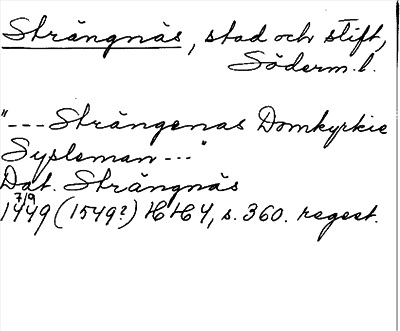 Strängnäs, stad och stift,
Söderm. l.
"--- Strängenas Domkyrkie
Sysleman ---"
Dat. Strängnäs
7/9
1449 (1549?) HH 4, s. 360. regest.